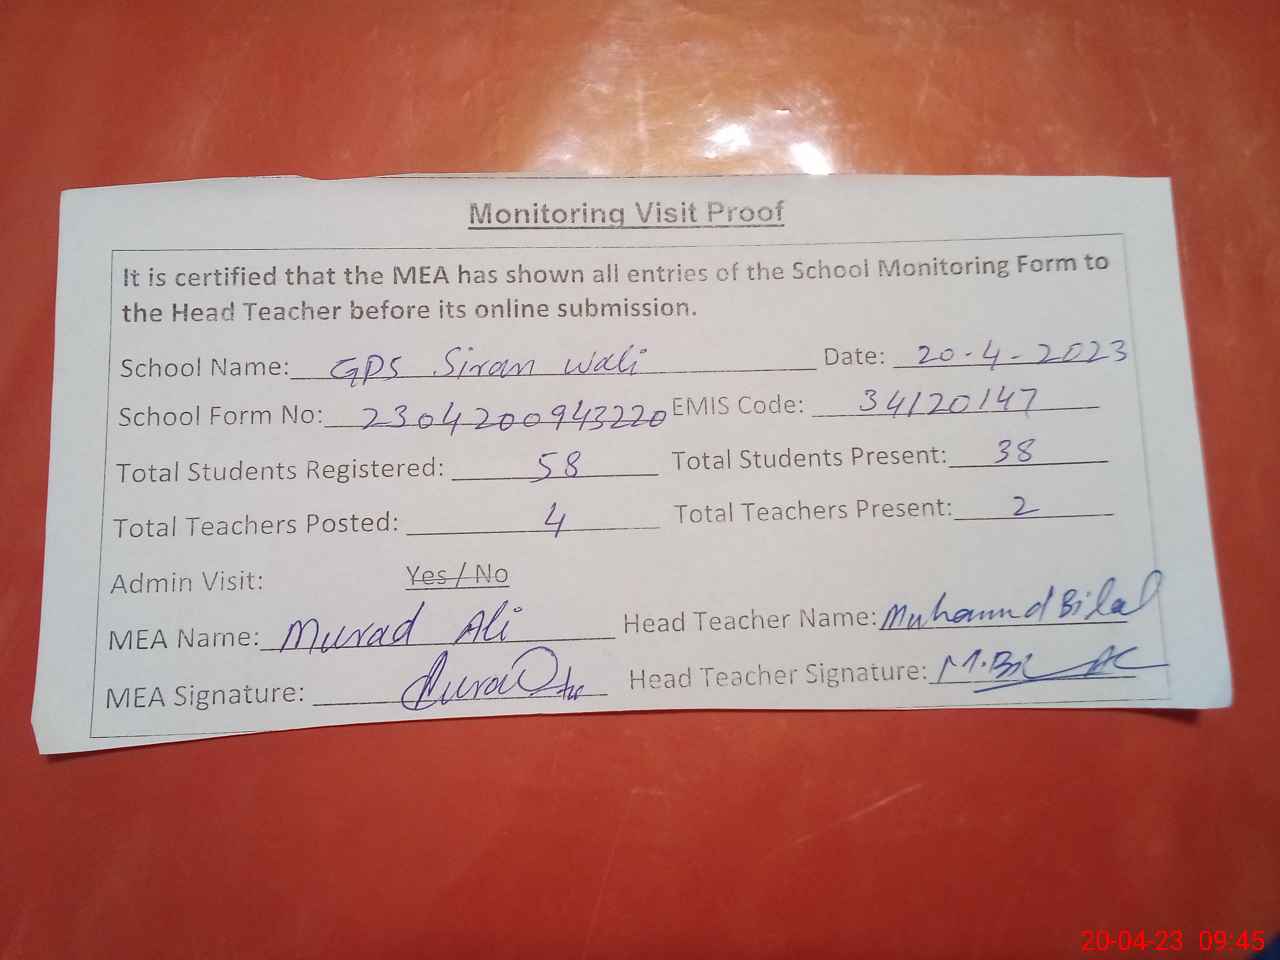 Monitoring Visit Proof
It is certified that the MEA has shown all entries of the School Monitoring Form to
the Head Teacher before its online submission.
School Name: GPS Siran Wali Date: 20-4-2023
School Form No: 2304200943220 EMIS Code: 34120147
Total Students Registered: 58 Total Students Present: 38
Total Teachers Posted: 4 Total Teachers Present: 2
Admin Visit: Yes / No
MEA Name: Murad Ali Head Teacher Name: Muhammd Bilal
MEA Signature: Head Teacher Signature:
20-04-23 09:45